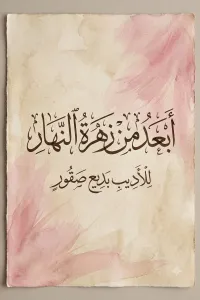 أَبْعَدُ مِنْ زَهْرَةُ ٱلنَّهَارِ
لِلْأَدِيبِ بَدِيع صَقُورٍ